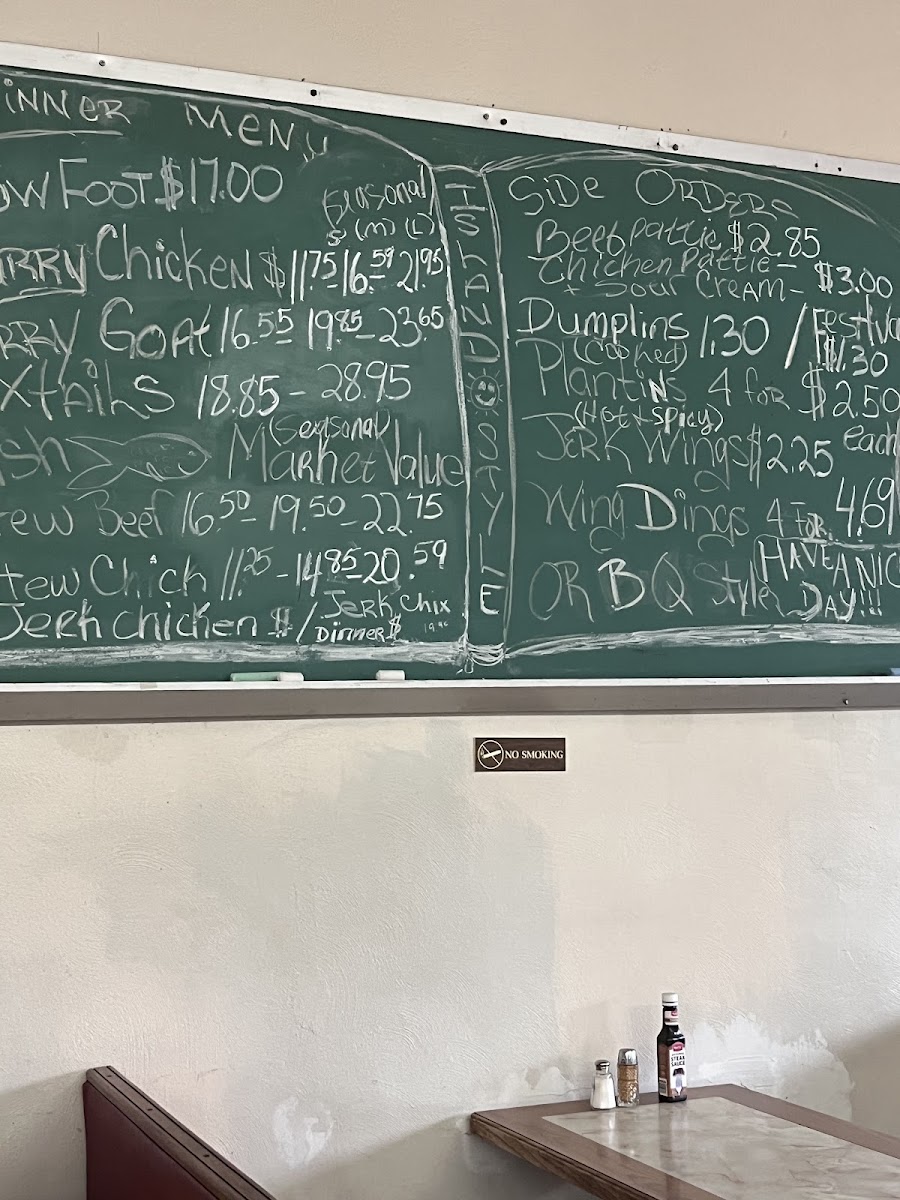 INNER MENU
OW FOOT $17.00
Seasonal
S (M) (L)
URRY Chicken $11.75 16.59 21.95
RRY Goat 16.55 19.85-23.65
xtAils 18.85 - 28.95
(Seasonal)
sh Market Value
ew Beef 16.50-19.50-22.75
tew Chick 11.25-14.85-20.59
Jerk chicken $ / Jerk Chix
Dinner $ 
ISLAND STYLE
SiDe ORDERS
Beef Pattie $2.85
Chicken Pattie -
+ Sour CREAM - $3.00
Dumplins 1.30 / Festiva
(Cooked) $1.30
PlantiNs 4 FOR $2.50
(Hot + Spicy)
JeRK Wings $2.25 each
Wing Dings 4 FOR 4.69
OR B Q Style
HAVE A NIC
DAY!!!
NO SMOKING
STEAK
SAUCE